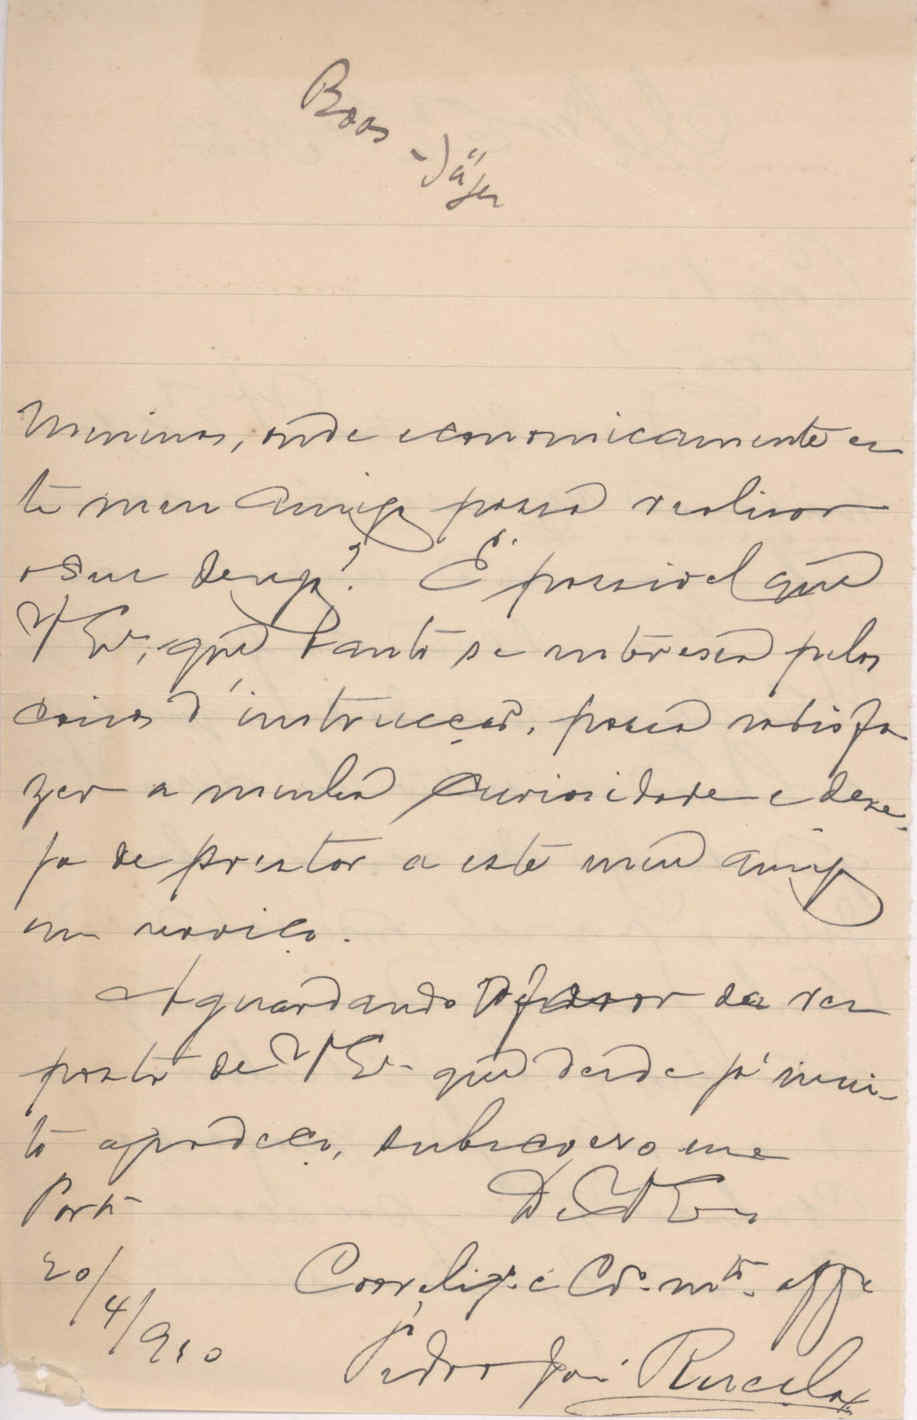 Boas
-Jäger
meninos, onde economicamente es
te meu amigo possa realisar
o seu desejo? É possivel que
V Ex.ª, que tanto se interessa pelas
coisas d'instrucção, possa satisfa
zer a minha curiosidade e dese-
jo de prestar a este meu amigo
um serviço.
Aguardando o favor da res
posta de V Ex.ª que desde já mui-
to agradeço, subscrevo me
Porto
De V Ex.ª
20/4/910
Correlig.º e Cr.º m.to aff.e
Pedro José